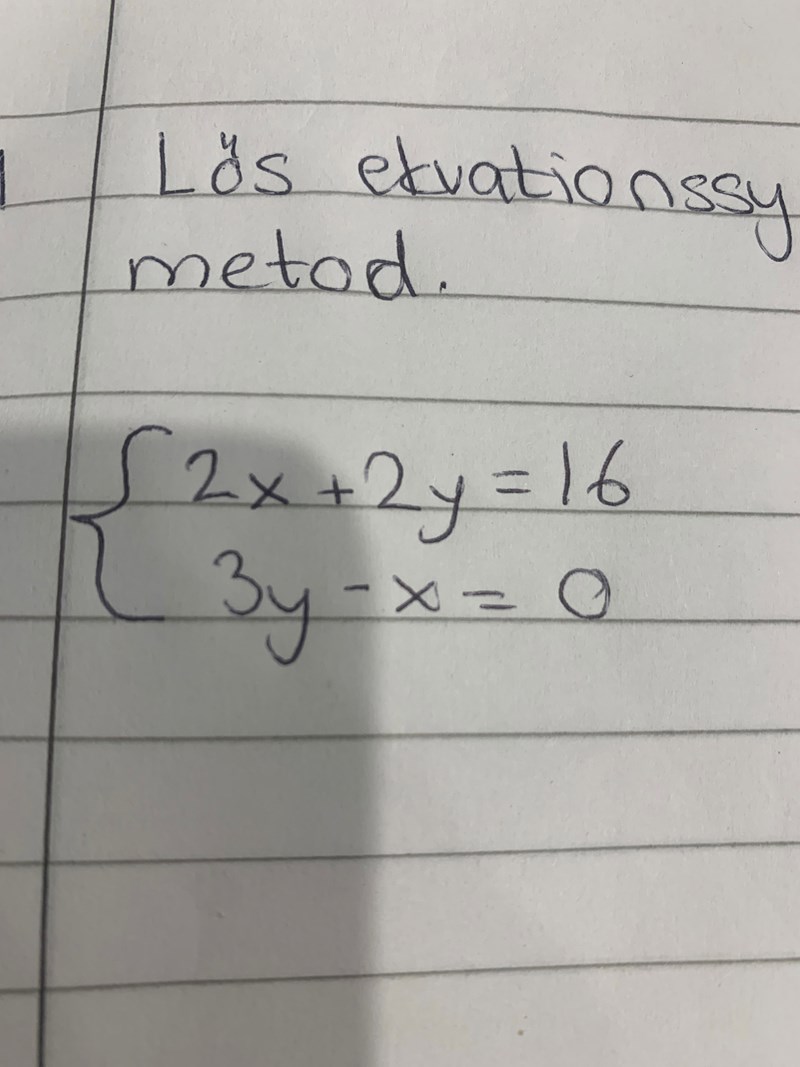 Lös ekvationssy
metod.
2x + 2y = 16
3y - x = 0